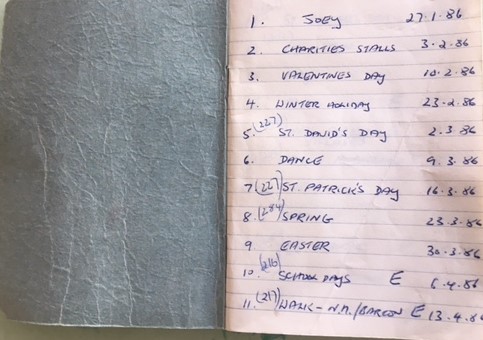 1. JOEY 27.1.86
2. CHARITIES STALLS 3.2.86
3. VALENTINES DAY 10.2.86
4. WINTER HOLIDAY 23.2.86
5. (227) ST. DAVID'S DAY 2.3.86
6. DANCE 9.3.86
7 (227) ST. PATRICK'S DAY 16.3.86
8. (284) SPRING 23.3.86
9. EASTER 30.3.86
10. (216) SCHOOL DAYS E 6.4.86
11. (217) WALK - N.M./ E 13.4.86